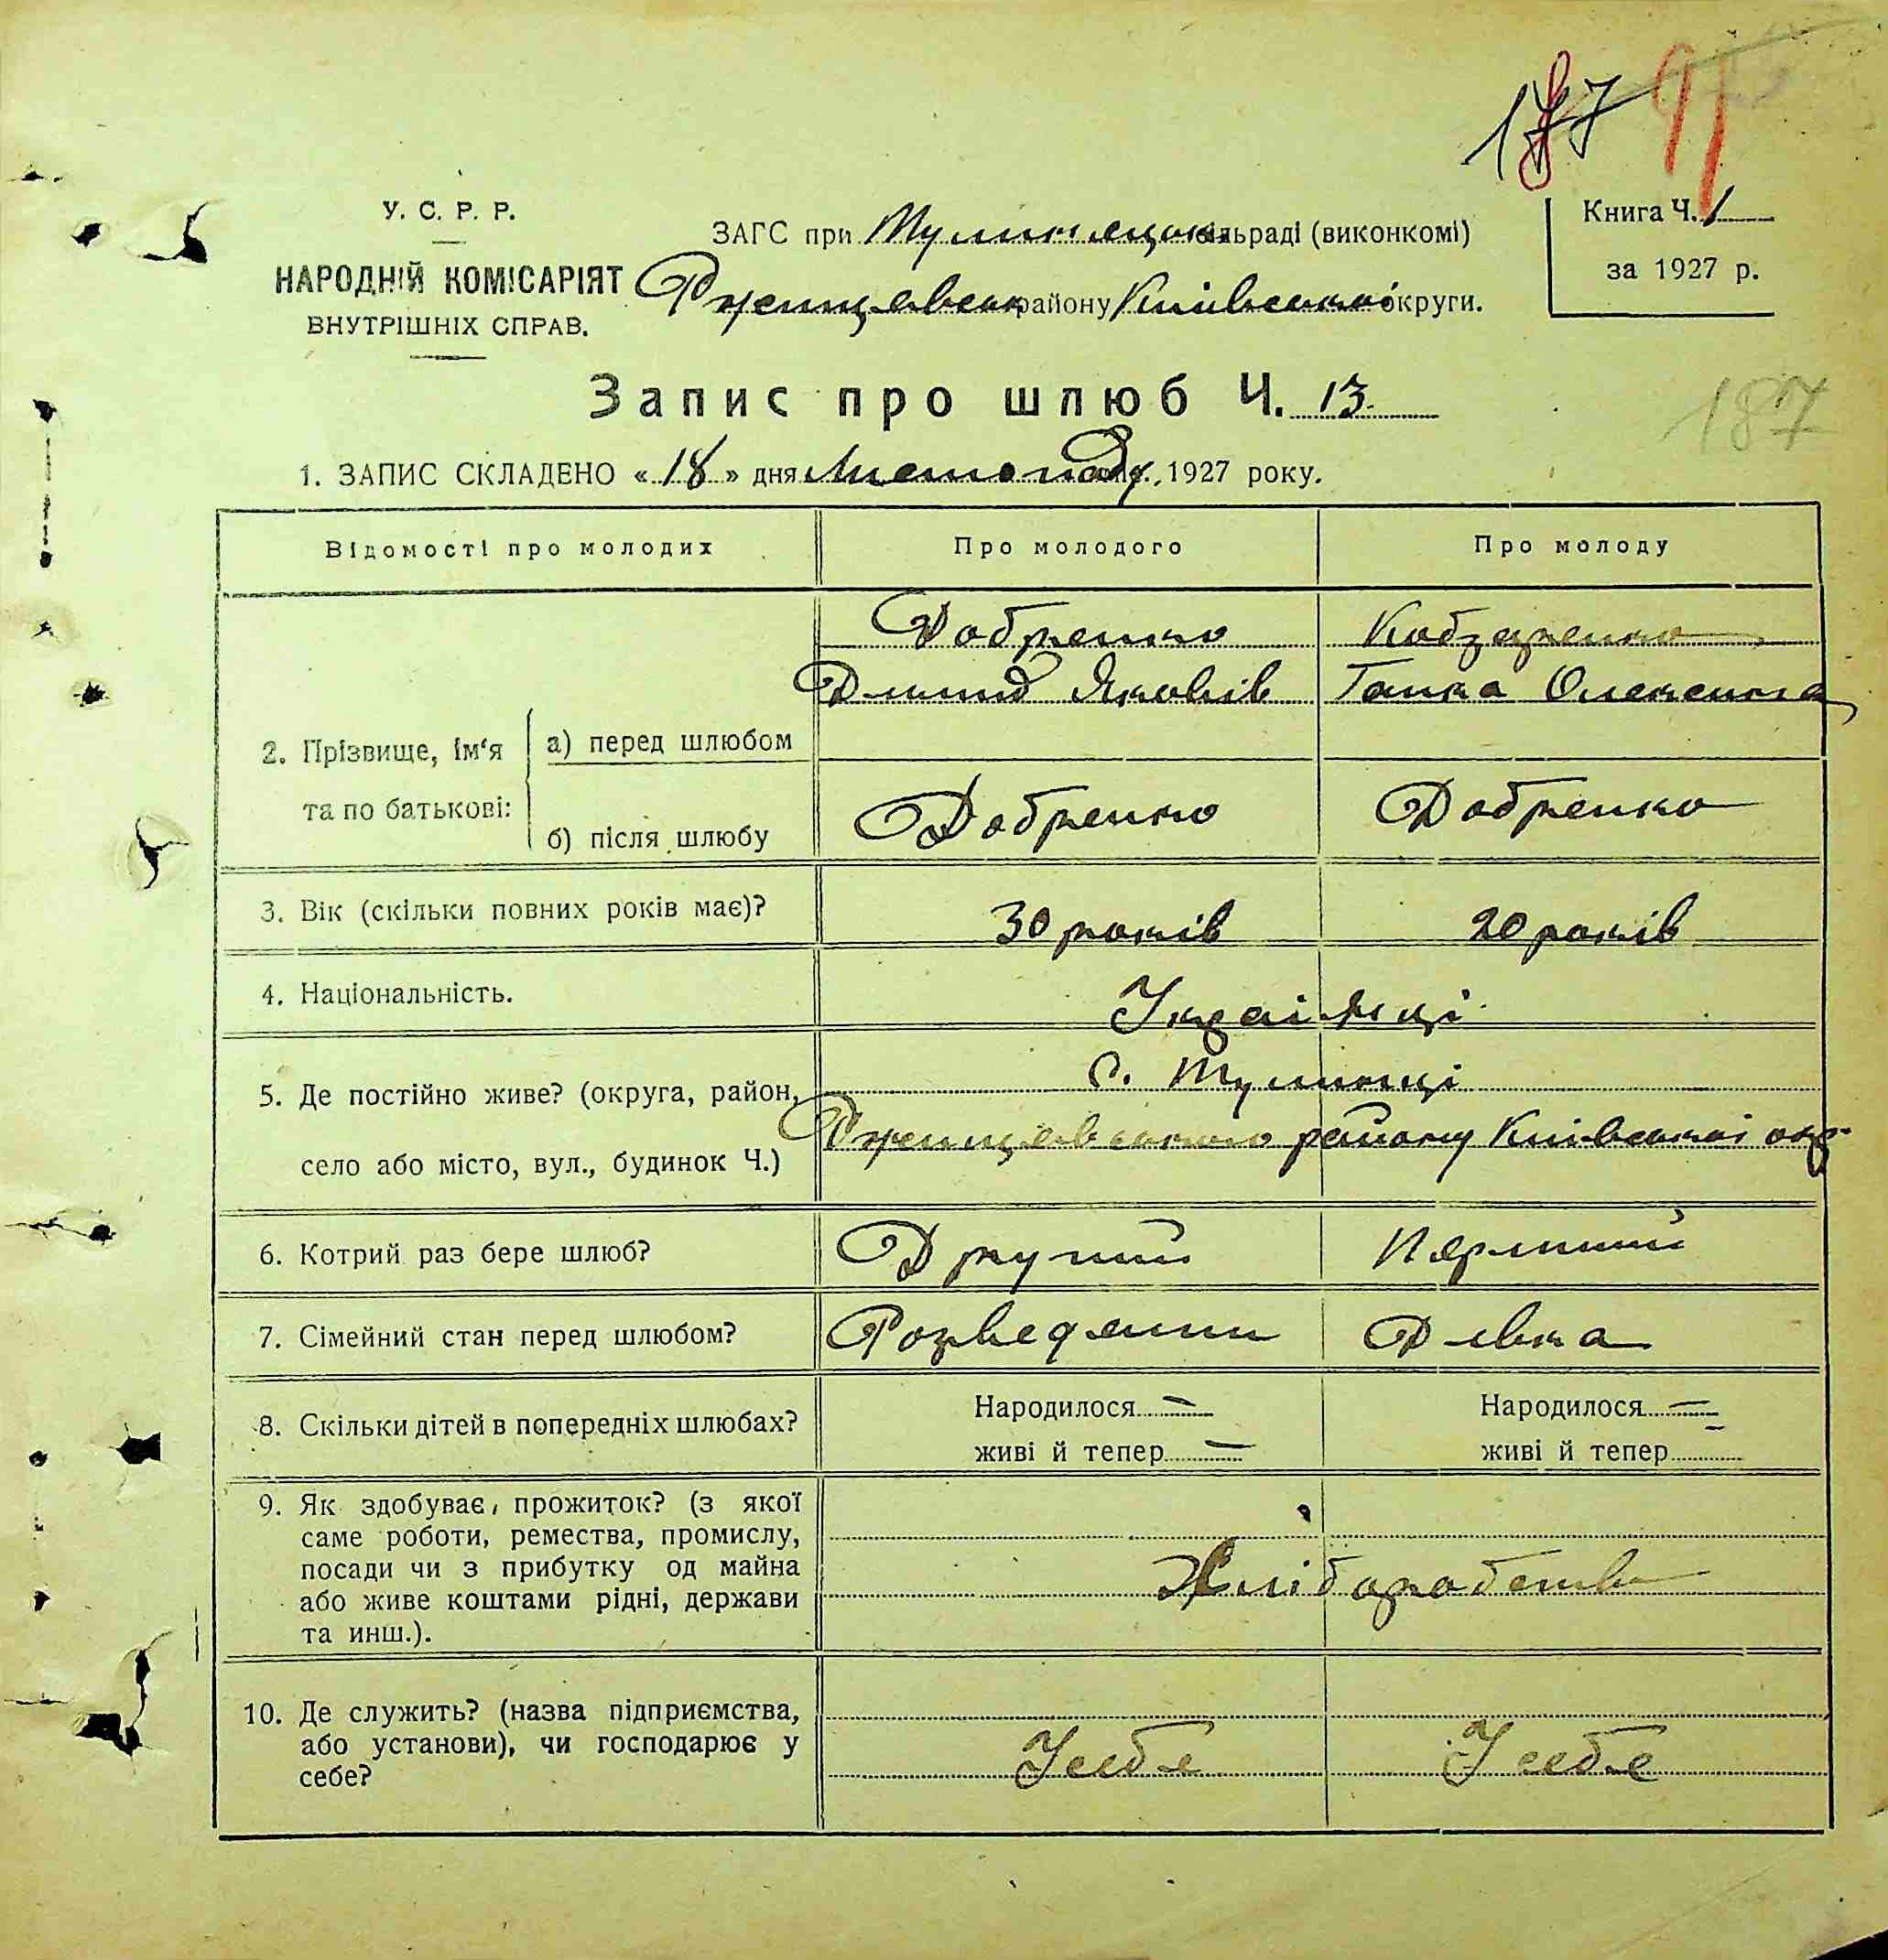 187 91
У. С. Р. Р.
НАРОДНІЙ КОМІСАРІЯТ
ВНУТРІШНІХ СПРАВ.
ЗАГС при Тулинецькій сільраді (виконкомі)
Ржищевськ району Київської округи.
Книга Ч. 1
за 1927 р.
Запис про шлюб Ч. 13
187
1. ЗАПИС СКЛАДЕНО « 18 » дня Листопаду 1927 року.
Відомості про молодих Про молодого Про молоду
2. Прізвище, ім‘я та по батькові:
а) перед шлюбом
Добренко
Яковів
Кобзаренко
Ганка Олексієвна
б) після шлюбу Добренко Добренко
3. Вік (скільки повних років має)? 30 років 20 років
4. Національність. Українці
5. Де постійно живе? (округа, район, с. Тулинці
село або місто, вул., будинок Ч.) Ржищевського району Київської окр.
6. Котрий раз бере шлюб? Другий Перший
7. Сімейний стан перед шлюбом? Розведений Дівка
8. Скільки дітей в попередніх шлюбах? Народилося — Народилося —
живі й тепер — живі й тепер —
9. Як здобуває прожиток? (з якої
саме роботи, ремества, промислу,
посади чи з прибутку од майна
або живе коштами рідні, держави
та инш.).
Хліборобство
10. Де служить? (назва підприємства,
або установи), чи господарює у
себе?
У себе У себе